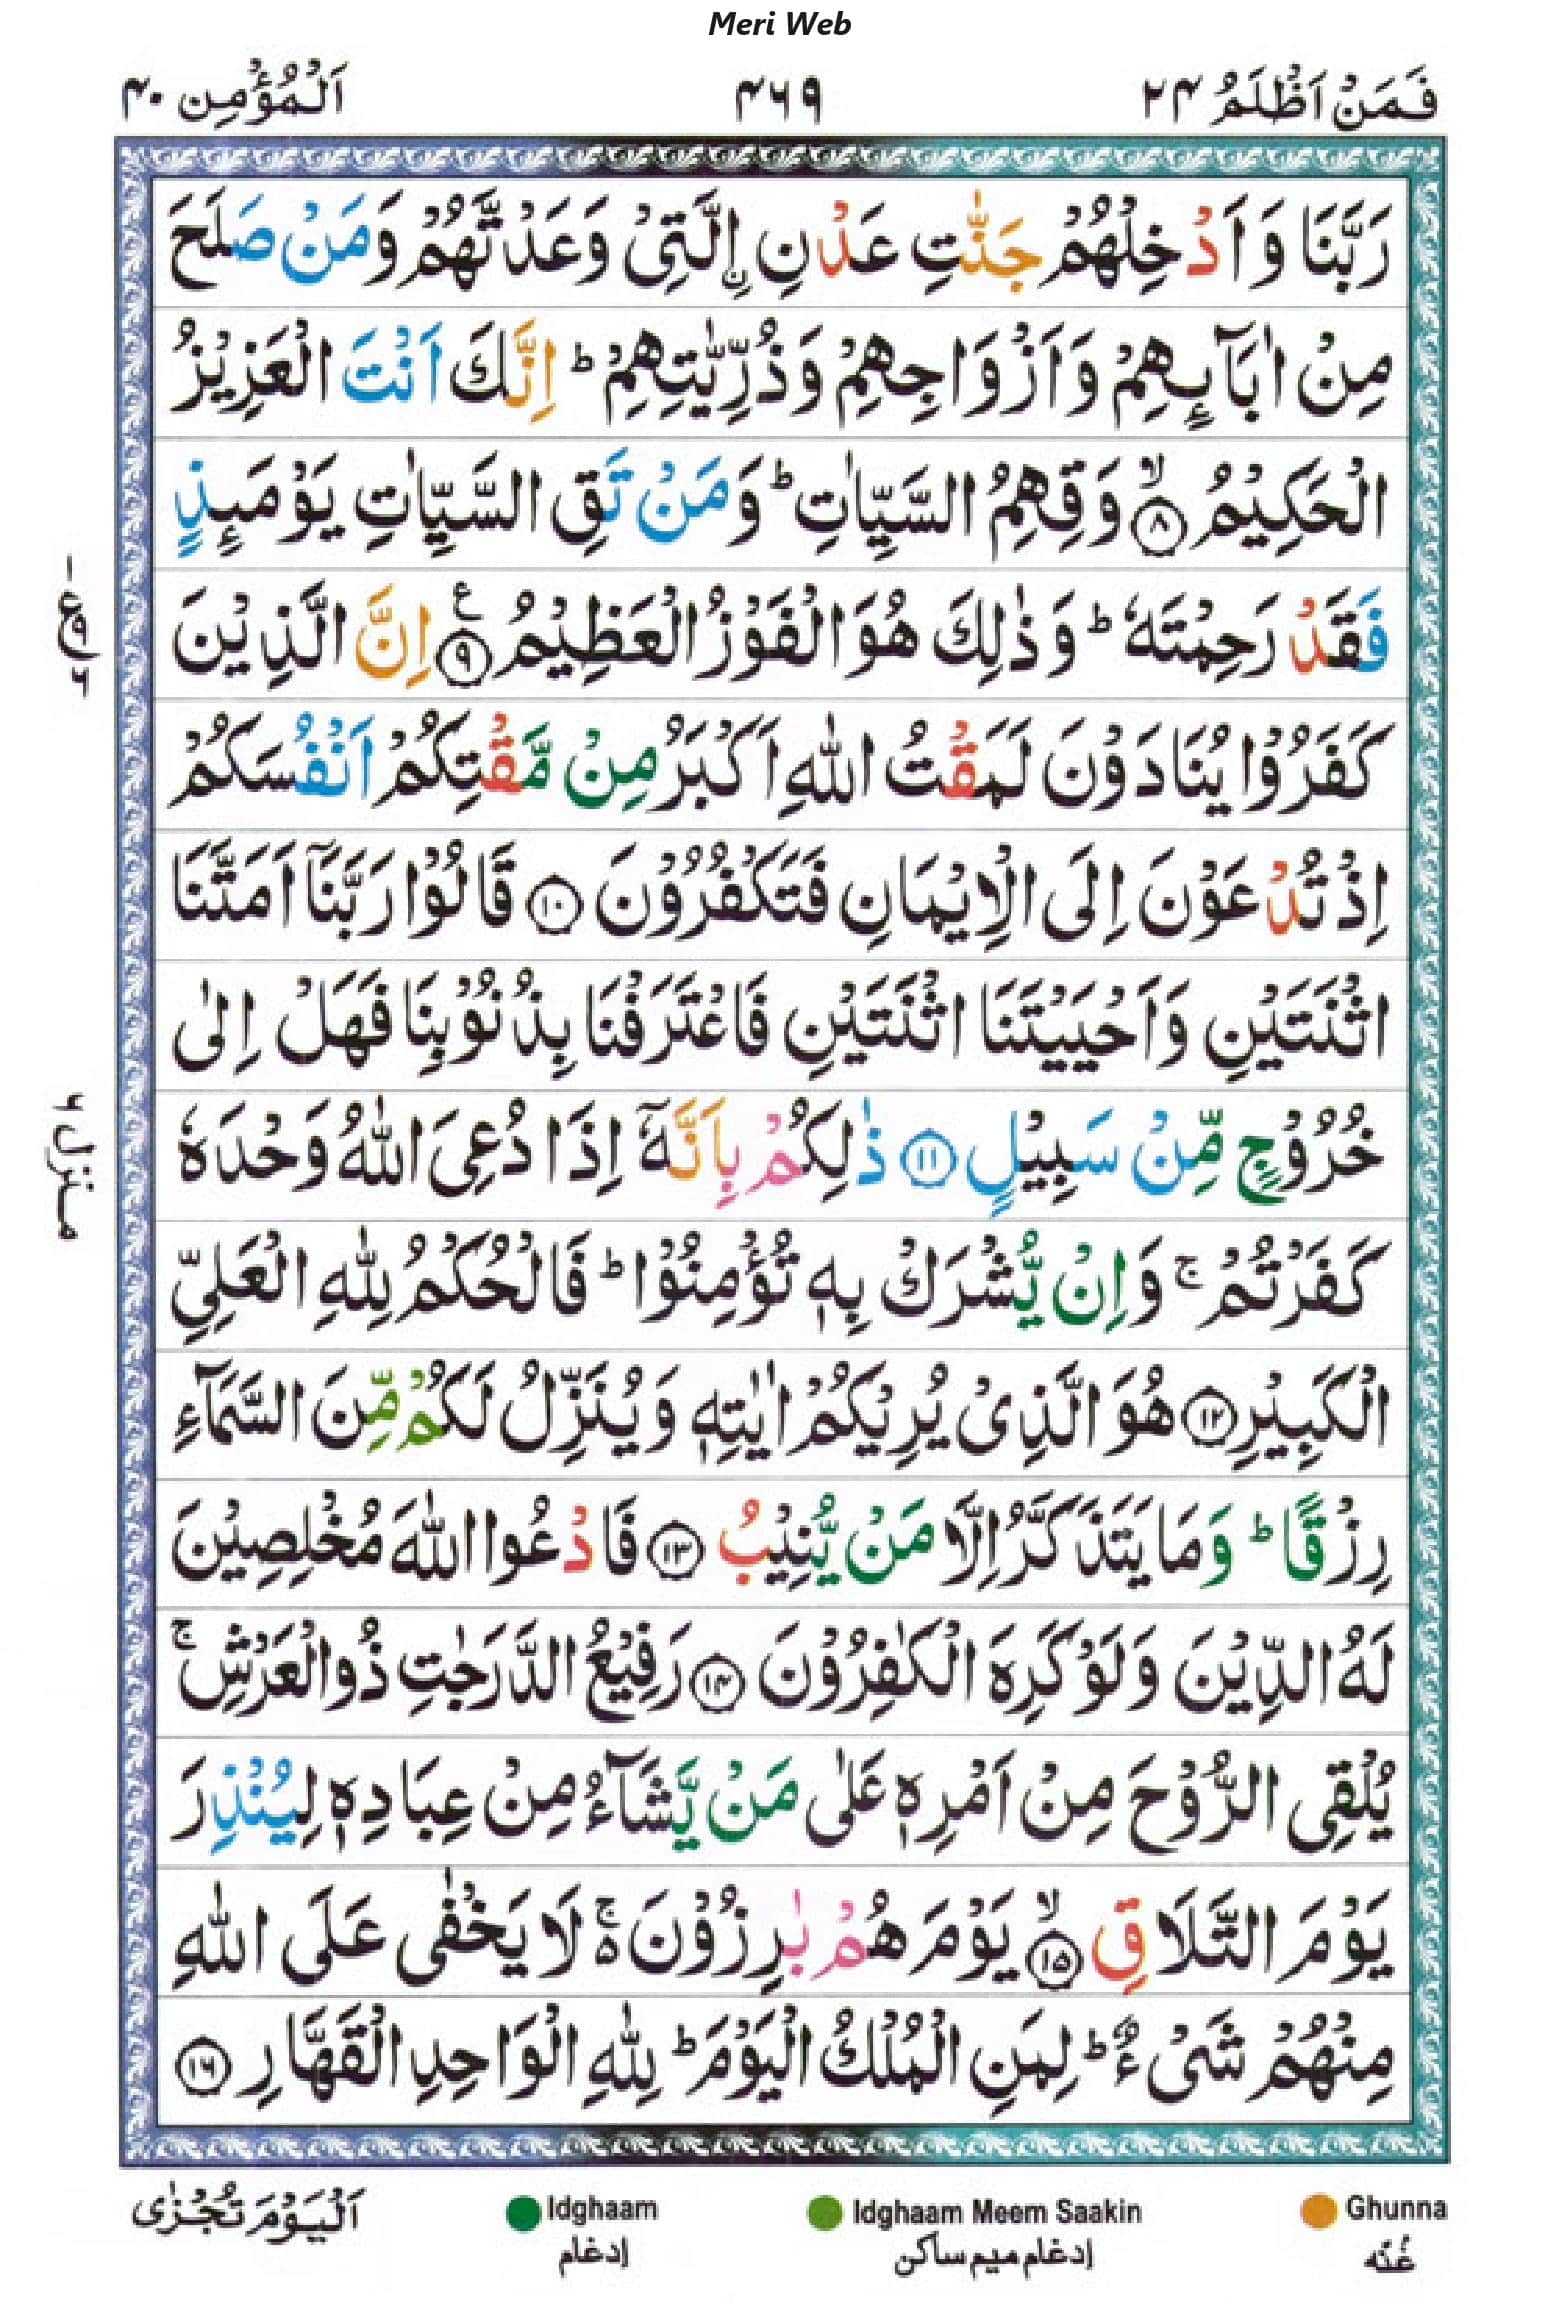 Meri Web
فَمَنْ اَظْلَمُ ۲۴ ۴۶۹ اَلْمُؤْمِن ۴۰
رَبَّنَا وَ اَدْخِلْهُمْ جَنّٰتِ عَدْنِ اِۨلَّتِیْ وَعَدْتَّهُمْ وَمَنْ صَلَحَ
مِنْ اٰبَآىِٕهِمْ وَاَزْوَاجِهِمْ وَذُرِّیّٰتِهِمْ ؕ اِنَّكَ اَنْتَ الْعَزِیْزُ
الْحَكِیْمُ ۙ ﴿۸﴾ وَقِهِمُ السَّیِّاٰتِ ؕ وَمَنْ تَقِ السَّیِّاٰتِ یَوْمَىِٕذٍ
فَقَدْ رَحِمْتَهٗ ؕ وَذٰلِكَ هُوَ الْفَوْزُ الْعَظِیْمُ ﴿۹﴾ ع اِنَّ الَّذِیْنَ
كَفَرُوْا یُنَادَوْنَ لَمَقْتُ اللّٰهِ اَكْبَرُ مِنْ مَّقْتِكُمْ اَنْفُسَكُمْ
اِذْ تُدْعَوْنَ اِلَی الْاِیْمَانِ فَتَكْفُرُوْنَ ﴿۱۰﴾ قَالُوْا رَبَّنَاۤ اَمَتَّنَا
اثْنَتَیْنِ وَاَحْیَیْتَنَا اثْنَتَیْنِ فَاعْتَرَفْنَا بِذُنُوْبِنَا فَهَلْ اِلٰی
خُرُوْجٍ مِّنْ سَبِیْلٍ ﴿۱۱﴾ ذٰلِكُمْ بِاَنَّهٗۤ اِذَا دُعِیَ اللّٰهُ وَحْدَهٗ
كَفَرْتُمْ ۚ وَاِنْ یُّشْرَكْ بِهٖ تُؤْمِنُوْا ؕ فَالْحُكْمُ لِلّٰهِ الْعَلِیِّ
الْكَبِیْرِ ﴿۱۲﴾ هُوَ الَّذِیْ یُرِیْكُمْ اٰیٰتِهٖ وَیُنَزِّلُ لَكُمْ مِّنَ السَّمَآءِ
رِزْقًا ؕ وَمَا یَتَذَكَّرُ اِلَّا مَنْ یُّنِیْبُ ﴿۱۳﴾ فَادْعُوا اللّٰهَ مُخْلِصِیْنَ
لَهُ الدِّیْنَ وَلَوْ كَرِهَ الْكٰفِرُوْنَ ﴿۱۴﴾ رَفِیْعُ الدَّرَجٰتِ ذُو الْعَرْشِ ۚ
یُلْقِی الرُّوْحَ مِنْ اَمْرِهٖ عَلٰی مَنْ یَّشَآءُ مِنْ عِبَادِهٖ لِیُنْذِرَ
یَوْمَ التَّلَاقِ ۙ ﴿۱۵﴾ یَوْمَ هُمْ بٰرِزُوْنَ ۚ۬ لَا یَخْفٰی عَلَی اللّٰهِ
مِنْهُمْ شَیْءٌ ؕ لِمَنِ الْمُلْكُ الْیَوْمَ ؕ لِلّٰهِ الْوَاحِدِ الْقَهَّارِ ﴿۱۶﴾
منزل ۶
اَلْیَوْمَ تُجْزٰی
Idghaam Idghaam Meem Saakin Ghunna
إدغام إدغام میم ساکن غُنّه